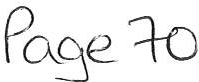 Page 70